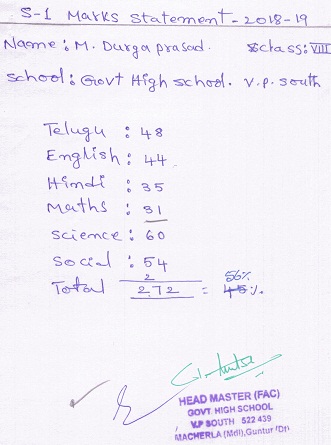 S-1 Marks Statement - 2018-19
Name : M. Durga prasad. class : VIII
school : Govt High school. V.P. south
Telugu : 48
English : 44
Hindi : 35
Maths : 31
science : 60
social : 54
2 56%
Total 272 = 45%
HEAD MASTER (FAC)
GOVT HIGH SCHOOL
V.P SOUTH 522 439
MACHERLA (Mdl), Guntur (Dt)